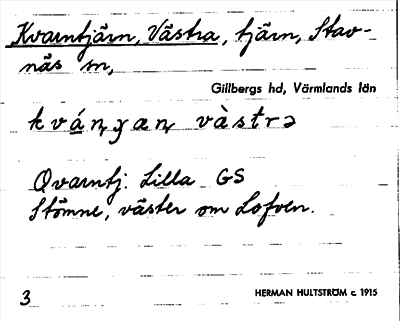 Kvarntjärn, Västra, tjärn, Stav-
näs sn,
Gillbergs hd, Värmlands län
kvá̱ṇɟæṇ vàstrə
Qvarntj. Lilla GS
Stömne, väster om Lofven.
3
HERMAN HULTSTRÖM c. 1915